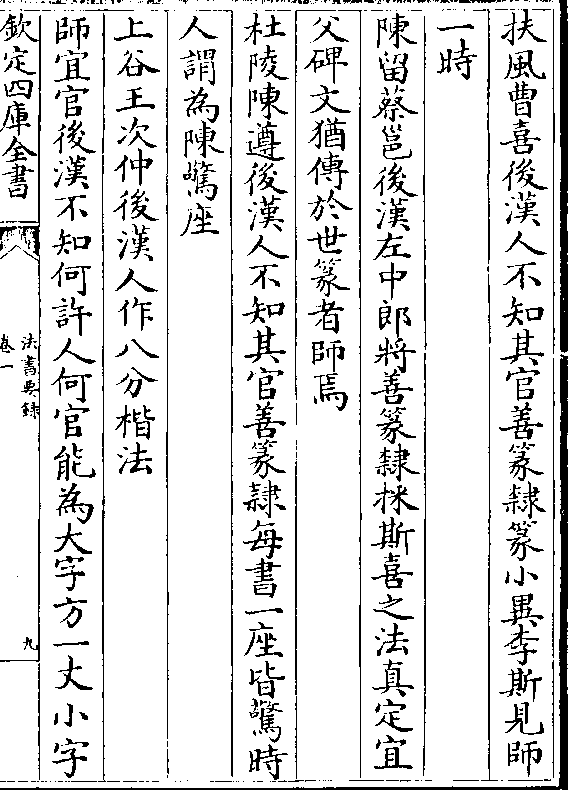 扶風曹喜後漢人不知其官善篆隸篆小異李斯見師
一時
陳留蔡邕後漢左中郎將善篆隸採斯喜之法真定宜
父碑文猶傳於世篆者師焉
杜陵陳遵後漢人不知其官善篆隸每書一座皆驚時
人謂為陳驚座
上谷王次仲後漢人作八分楷法
師宜官後漢不知何許人何官能為大字方一丈小字
欽定四庫全書
法書要錄
卷一
九